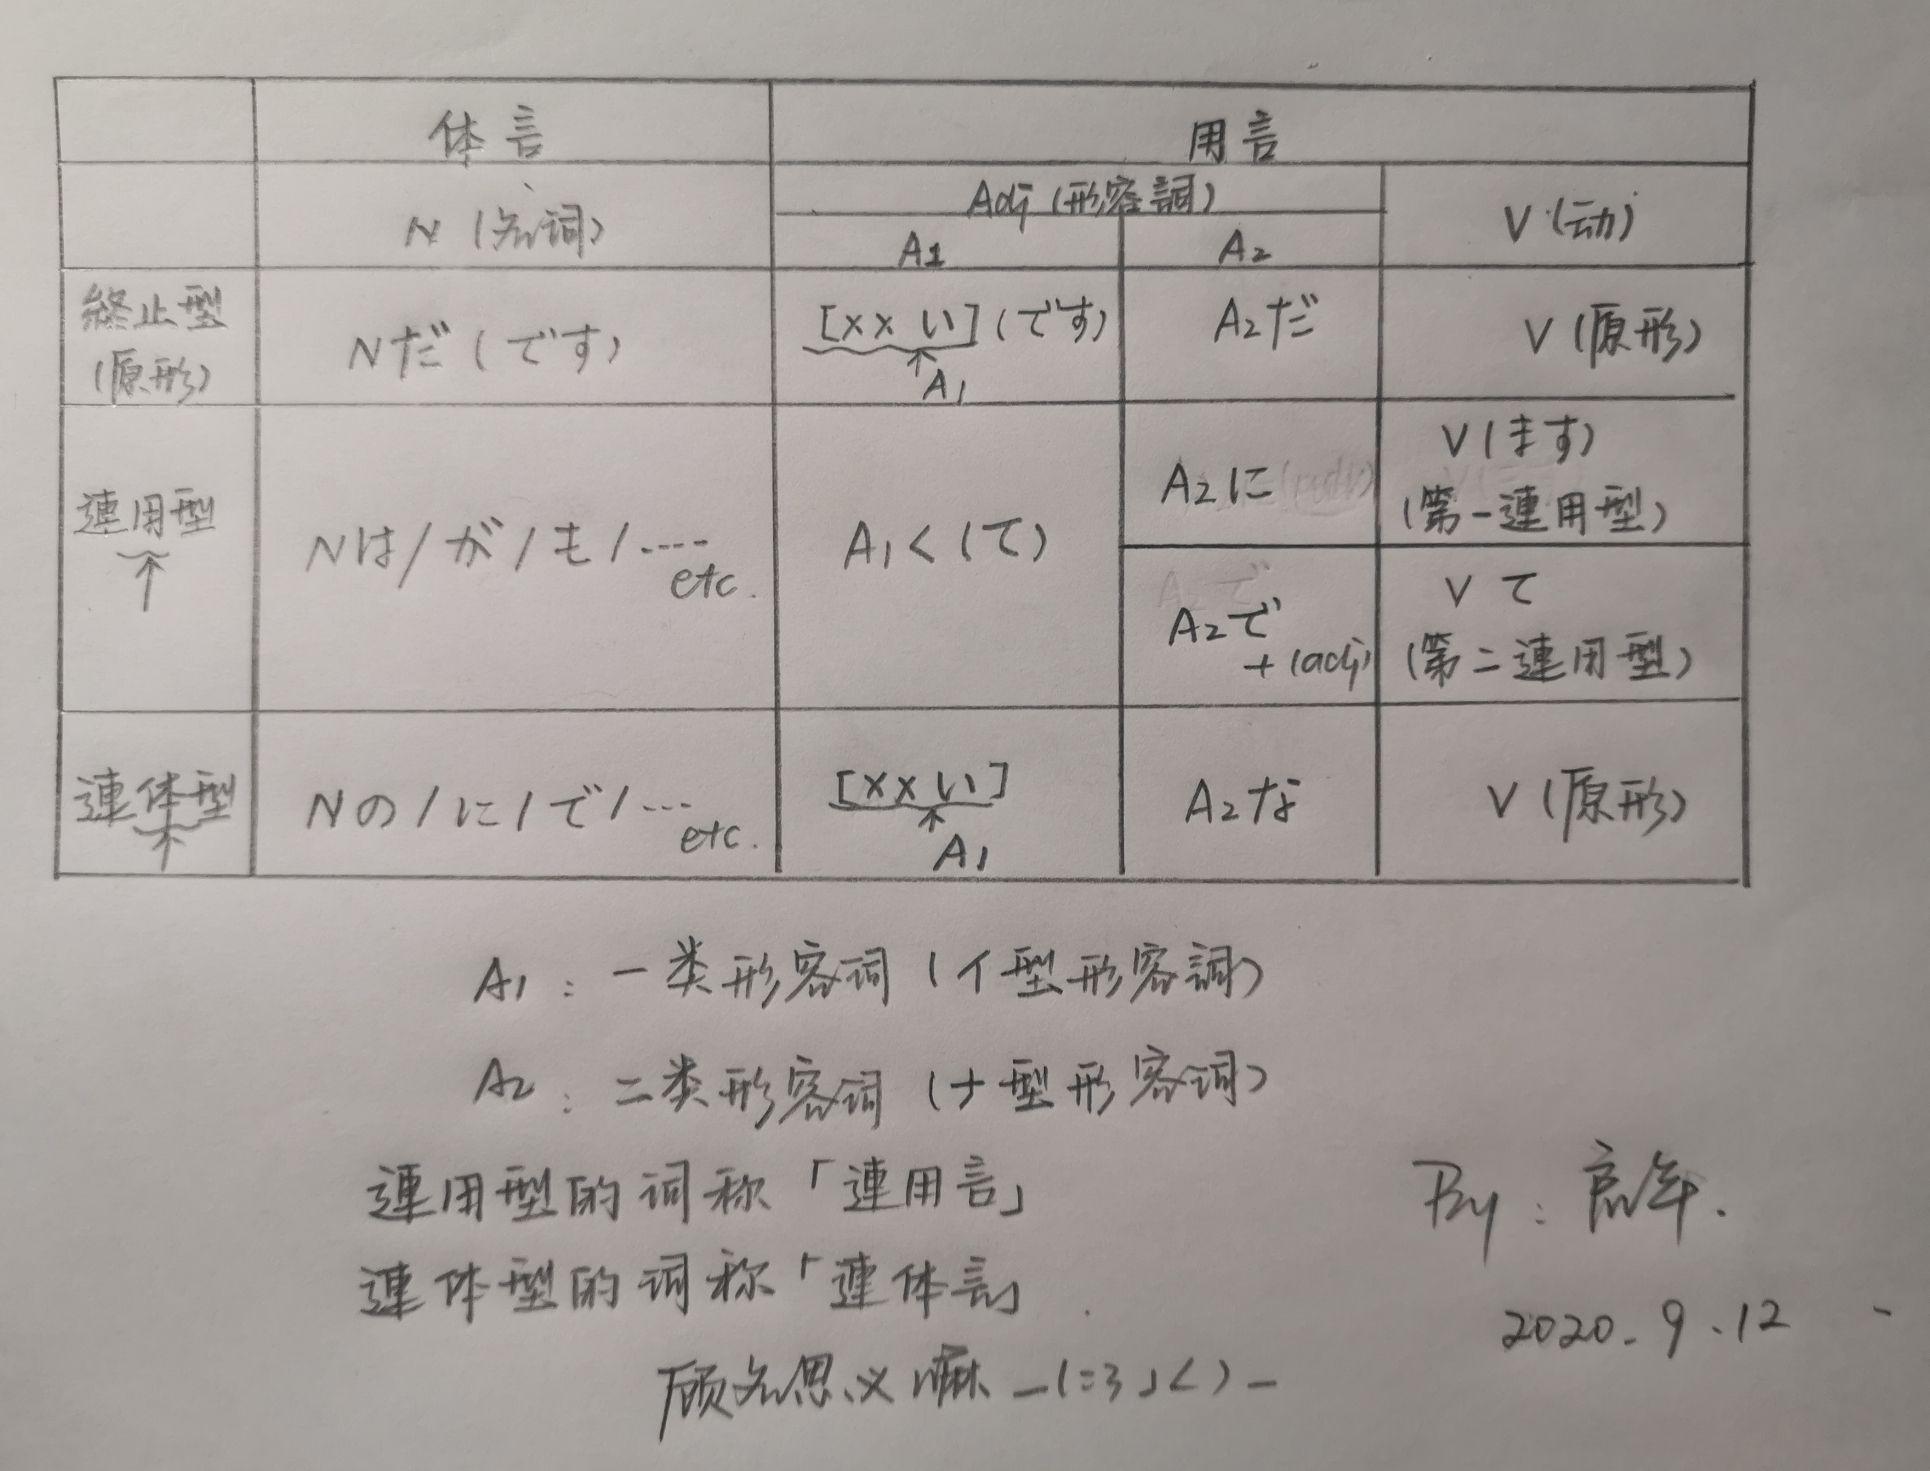 体言 用言
N（名词） Adj（形容詞） V（动）
A1 A2
終止型 [××い]（です） A2だ V（原形）
（原形） Nだ（です） A1
連用型 Nは/が/も/----etc. A1く（て） A2に V（ます）
（第一連用型）
A2で V て
+(adj) （第二連用型）
連体型 Nの/に/で/---etc. [××い] A2な V（原形）
A1
A1：一类形容词（イ型形容詞）
A2：二类形容词（ナ型形容词）
連用型的词称「連用言」
連体型的词称「連体言」
顾名思义嘛 _(:3」<)_
By：
2020.9.12